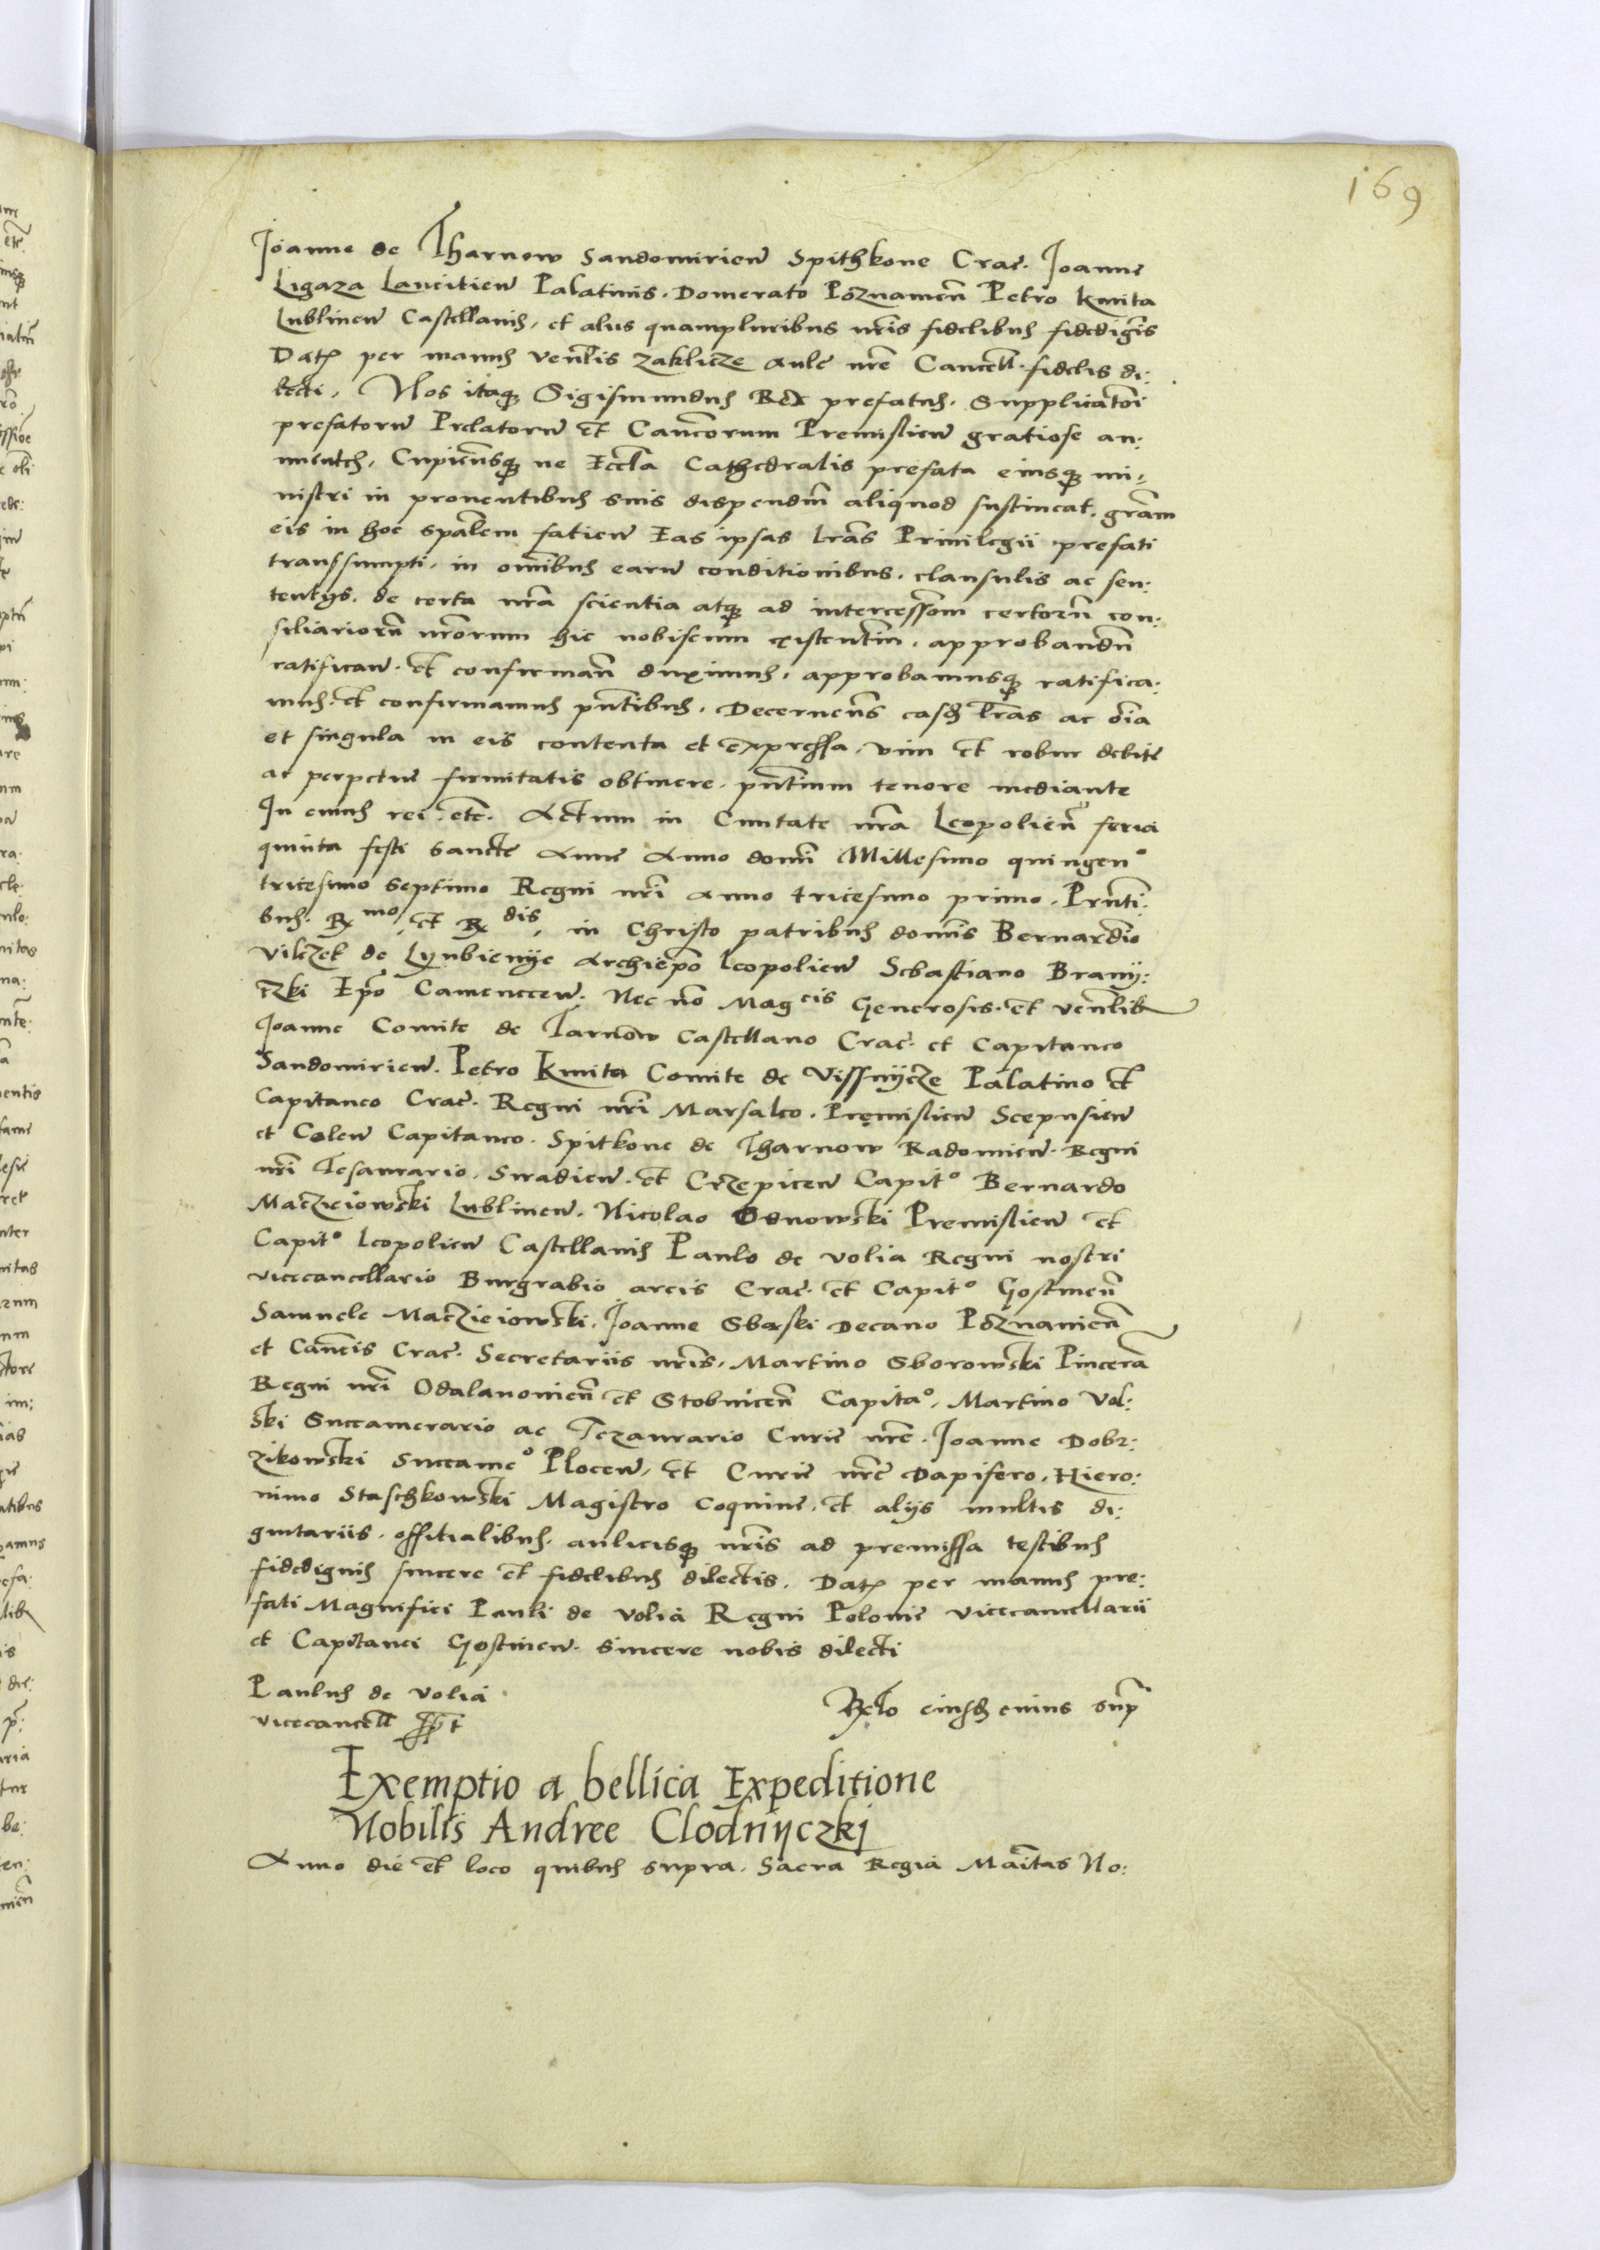 169
Joanne de Tharnow Sandomirien Spithkone Crac. Joanne
Ligaza Lancitien Palatinis. Domerato Poznanien Petro Kmita
Lublinen Castellanis, et aliis quampluribus nris fidelibus fidedignis
Dat per manus venlis Zaklicze Aule nre Cancell. fidelis di:
lecti, Nos itaque Sigismundus Rex prefatus. Supplicationi
prefatorum Prelatorum et Canoncorum Premislien gratiose an:
nuentes, Cupiensque ne Eccla Cathedralis prefata eiusque mi:
nistri in proventibus suis dispendium aliquod sustineat. gram
eis in hoc spalem facien Eas ipsas lras Privilegii prefati
transsumpti. in omibus earum conditionibus. clausulis ac sen:
tentijs. de certa nra scientia atque ad intercessiom certorum con:
siliariorum nrorum hic nobiscum existentium. approbandum
ratifican. et confirman duximus, approbamusque ratifica:
mus. et confirmamus pntibus. Decernens easdem lras ac oia
et singula in eis contenta et expressa. vim et robur debite
ac perpetue firmitatis obtinere. pntium tenore mediante
In cuius rei. etc. Actum in Civitate nra Leopolien feria
quinta festi Sancte Anne Anno domi Millesimo quingen°
tricesimo septimo Regni nri Anno tricesimo primo. Prnti:
bus. R mo, et R dis, in Christo patribus domis Bernardino
Vilczek de Lynbienye Archiepo Leopolien Sebastiano Branij:
czki Epo Camenecen. Nec no Mag cis Generosis. et venlib
Joanne Comite de Tarnow Castellano Crac. et Capitaneo
Sandomirien. Petro Kmita Comite de Vissnijcze Palatino et
Capitaneo Crac. Regni nri Marsalco. Premislien Scepusien
et Colen Capitaneo. Spitkone de Tharnow Radomien. Regni
nri Tesaurario. Siradien. et Crzepicen Capit° Bernardo
Maczieiowski Lublinen. Nicolao Odnowski Premislien et
Capit° Leopolien Castellanis Paulo de Volia Regni nostri
vicecancellario Burgrabio arcis Crac. et Capit° Gostinen
Samuele Maczieiowski. Joanne Sbaski Decano Poznanien
et Canocis Crac. Secretariis nris. Martino Sborowski Pincerna
Regni nri Odalanovien et Stobnicen Capita°. Martino Vol:
ski Succamerario ac Tezaurario Curie nre. Joanne Dobr:
zikowski Succame° Plocen, et Curie nre Dapifero. Hiero:
nimo Staschkowski Magistro Coquine. et alijs multis di:
gnitariis. offitialibus. aulicisque nris ad premissa testibus
fidedignis sincere et fidelibus dilectis. Dat per manus pre:
fati Magnifici Pauli de Volia Regni Polonie vicecancellarii
et Capitanei Gostinen. Sincere nobis dilecti
Paulus de Volia
vicecancell sspt
Relo eiusdem cuius sup
Exemptio a bellica Expeditione
Nobilis Andree Clodnijczkj
Anno die et loco quibus supra. Sacra Regia Maitas No: